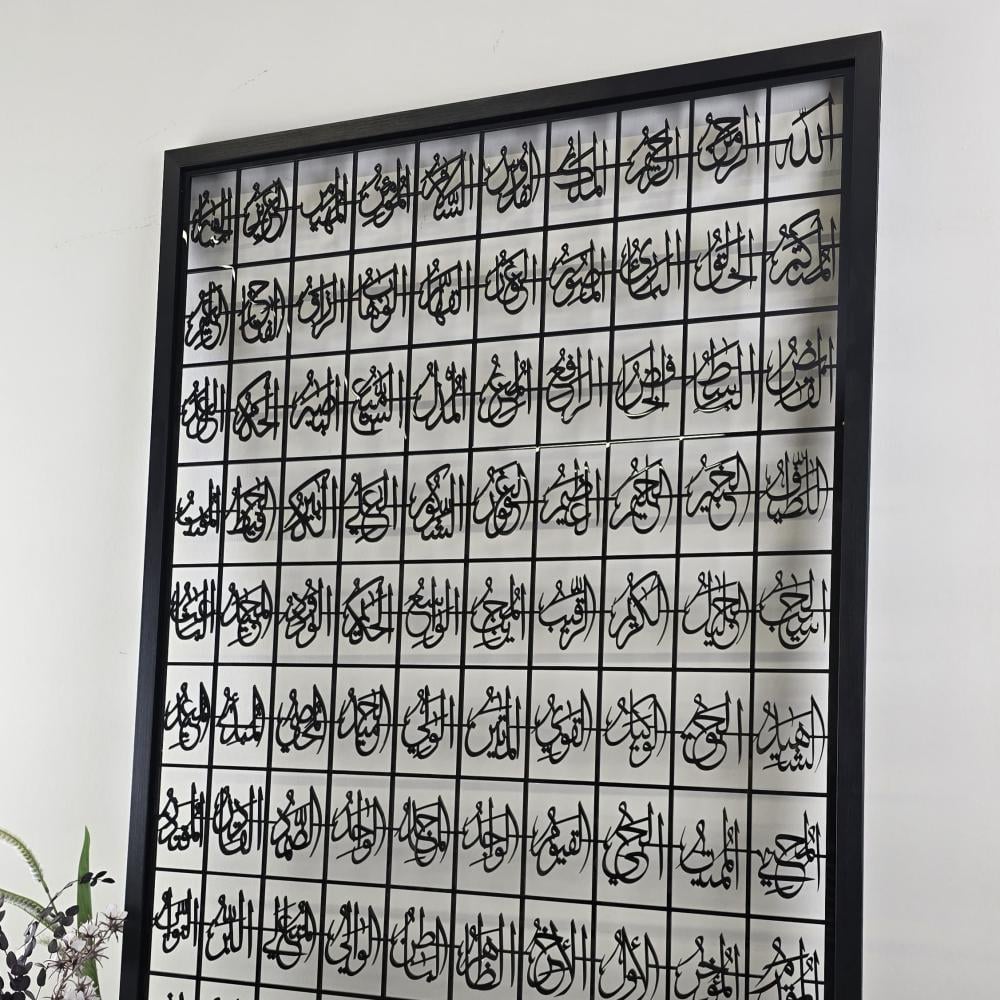 الله الرحمن الرحيم الملك القدوس السلام المؤمن المهيمن العزيز الجبار
المتكبر الخالق البارئ المصور الغفار القهار الوهاب الرزاق الفتاح العليم
القابض الباسط الخافض الرافع المعز المذل السميع البصير الحكم العدل
اللطيف الخبير الحليم العظيم الغفور الشكور العلي الكبير الحفيظ المقيت
الحسيب الجليل الكريم الرقيب المجيب الواسع الحكيم الودود المجيد الباعث
الشهيد الحق الوكيل القوي المتين الولي الحميد المحصي المبدئ المعيد
المحيي المميت الحي القيوم الواجد الماجد الواحد الصمد القادر المقتدر
المقدم المؤخر الأول الآخر الظاهر الباطن الوالي المتعالي البر التواب